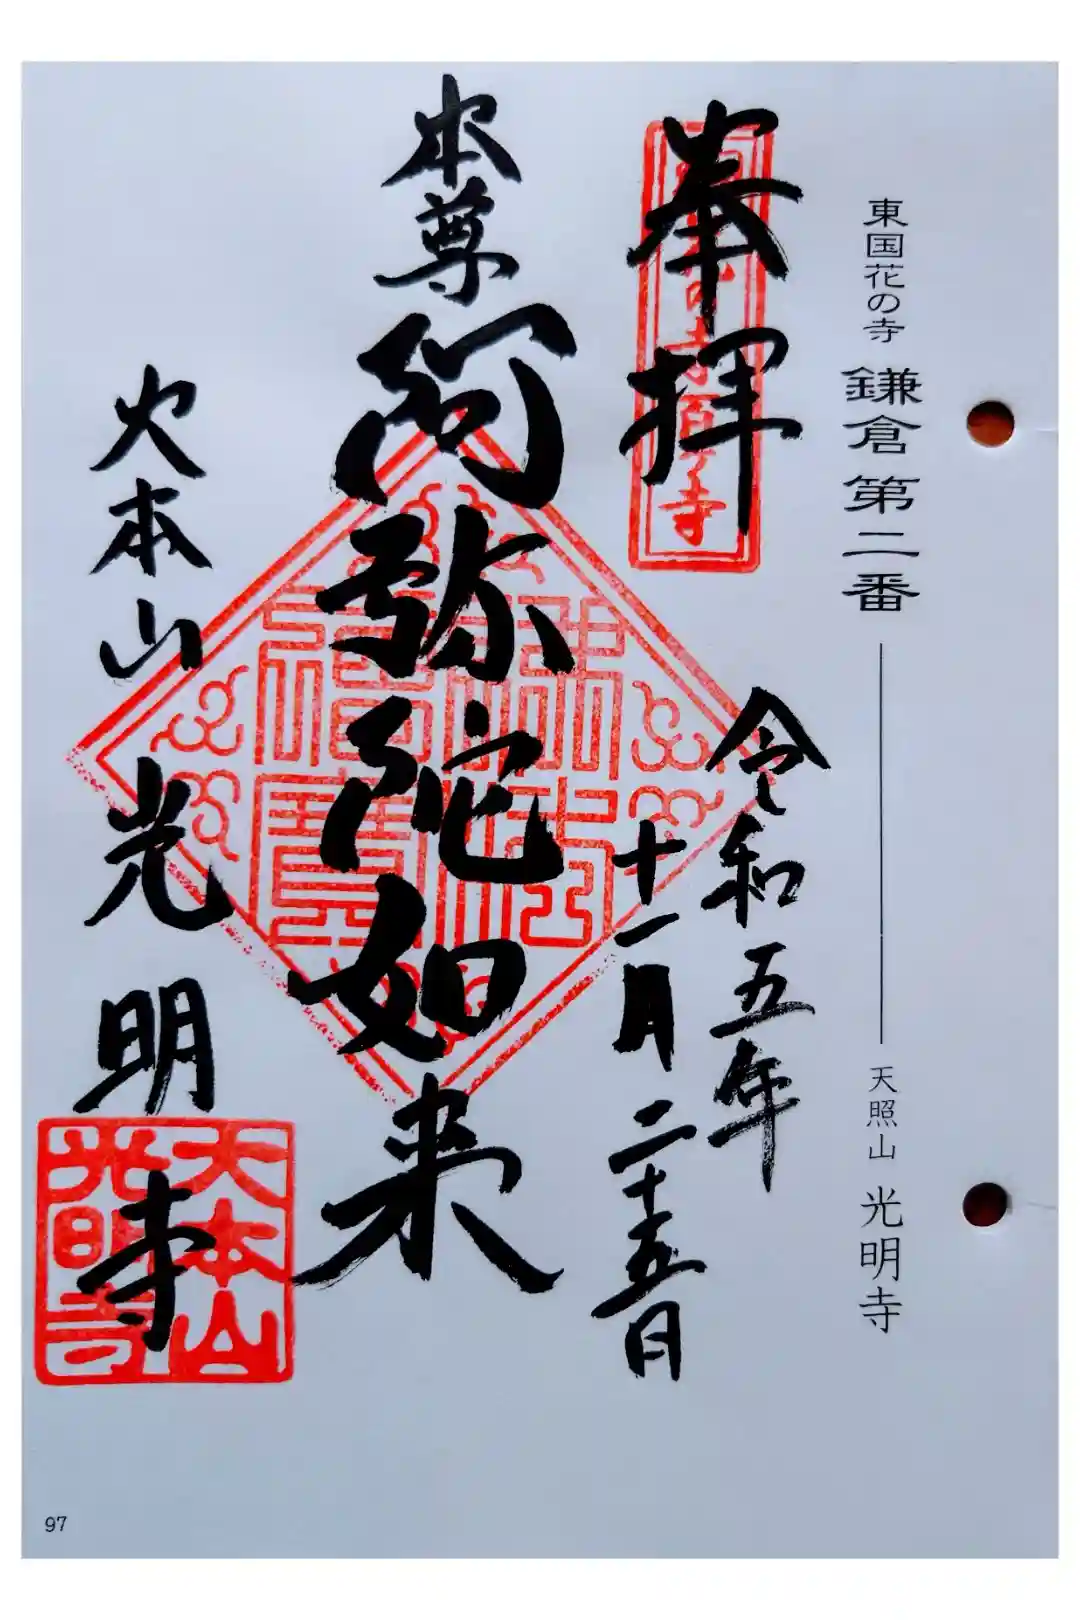 東国花の寺 鎌倉第二番 天照山 光明寺
奉拝
令和五年
十一月二十五日
本尊 阿弥陀如来
大本山 光明寺
佛法僧寶
大本山
光明寺
97